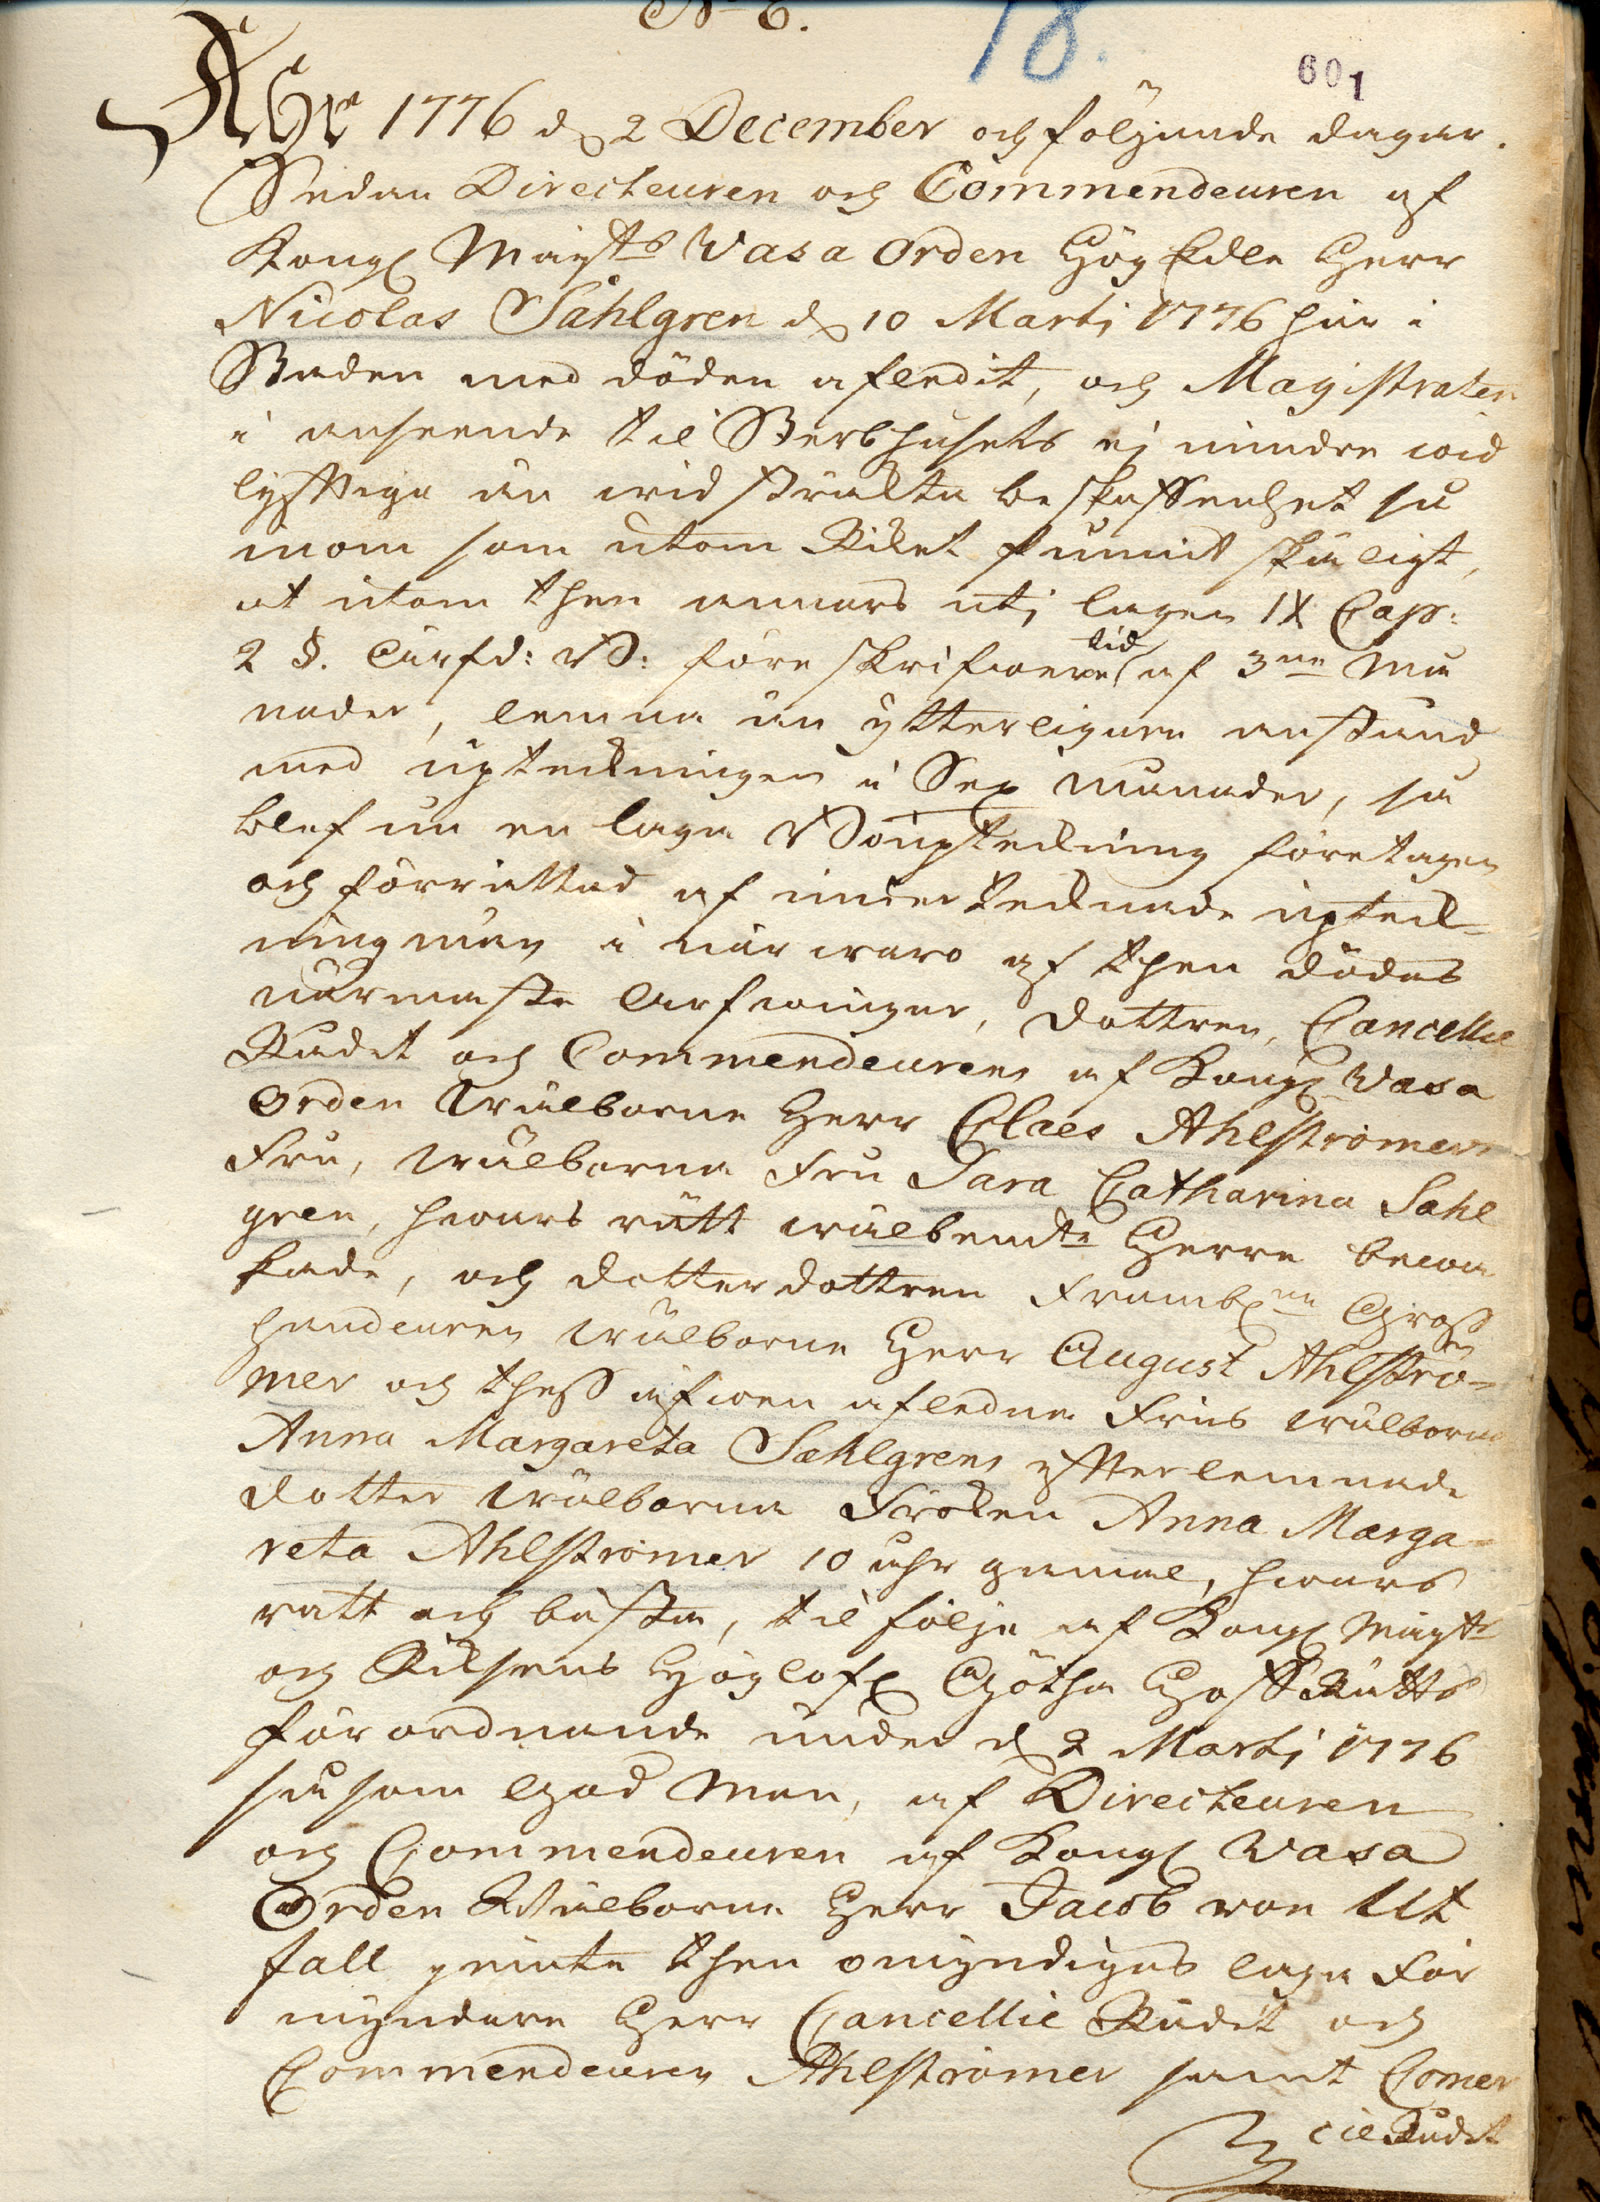 No 6.
18.
601
Åhr 1776 d 2 December och följande dagar.
Sedan Directeuren och Commendeuren af
Kongl Mayts Wasa Orden Hög Edle Herr
Nicolas Sahlgren d 10 Martj 1776 här i
Staden med döden aflidit, och Magistraten
i anseende til Sterbhusets ej mindre wid
lyftiga än widsträkta beskaffenhet så
inom som utom Riket funnit skäligt,
at utom then annars utj lagen IX Cap:
2 §. Ärfd: B: föreskrifwene tid af 3ne Må
nader, lemna än ytterligare anstånd
med upteckningen i Sex månader, så
blef nu en laga Boupteckning företagen
och förrättad af undertecknade uptek-
ningmän i närwaro af then dödas
närmaste Arfwingar, dottren, Cancellie
Rådet och Commendeurens af Kongl Wasa
Orden Wälborne Herr Claes Ahlströmers
Fru, Wälborna Fru Sara Catharina Sahl
gren, hwars rätt wälbemte Herre bewa
kade, och dotterdottren framl Gross
handlaren Wälborne Herr August Ahlströ-
mer och thess äfwen afledna Frus Wälborna
Anna Margareta Sahlgrens efterlemnade
dotter Wälborna Fröken Anna Marga-
reta Ahlströmer 10 åhr gamal, hwars
rätt och bästa, til följe af Kongl Mayts
och Riksens Höglofl Götha HoffRätts
förordnande under d 2 Martj 1776
såsom God Man, af Directeuren
och Commendeuren af Kongl Wasa
Orden Wälborne Herr Jacob von Ut
fall jemte then omyndigas laga För
myndare Herr Cancellie Rådet och
Commendeuren Ahlströmer samt Comer
cie Rådet